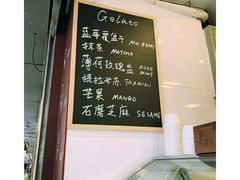 Gelato
蓝莓覆盆子 MIX BERRI
抹茶 MATCHA
薄荷玫瑰盐 ROSE MINT
提拉米苏 TIRAMISU
芒果 MANGO
石磨芝麻 SESAME